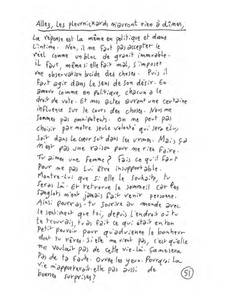 Allez, les pleurnichards n'auront rien à dîmer,
La réponse est la même en politique et dans
l'intime. Non, il ne faut pas accepter le
réel comme un bloc de granit immuable.
Il faut, même si elle fait mal, s'imposer
une observation lucide des choses. Puis, il
faut agir dans le sens de son désir. En
amour comme en politique, chacun a le
droit de vote. Et nos actes auront une certaine
influence sur le cours des choses. Nous ne
sommes pas omnipotents. On ne peut pas
choisir par notre seule volonté qui sera élu,
soit dans le cœur soit dans les urnes. Mais, ça
n'est pas une raison pour ne rien faire.
Tu aimes une femme? Fais ce qu'il faut
pour ne pas lui être insupportable.
Montre-lui que si elle le souhaite, tu
seras là. Et retrouve le sommeil car les
sanglots n'ont jamais fait venir personne.
Ainsi pourras-tu sourire au monde avec
le sentiment que toi, depuis l'endroit où tu
te trouvais, tu as fait ce qui était en ton
petit pouvoir pour qu'advienne le bonheur
dont tu rêves. Si elle ne vient pas, c'est qu'elle
ne voulait pas de cette vie-là. Ça ne sera
pas de ta faute. Ouvre les yeux. Pourquoi la
vie n'apporterait-elle pas aussi de
bonnes surprises?
51